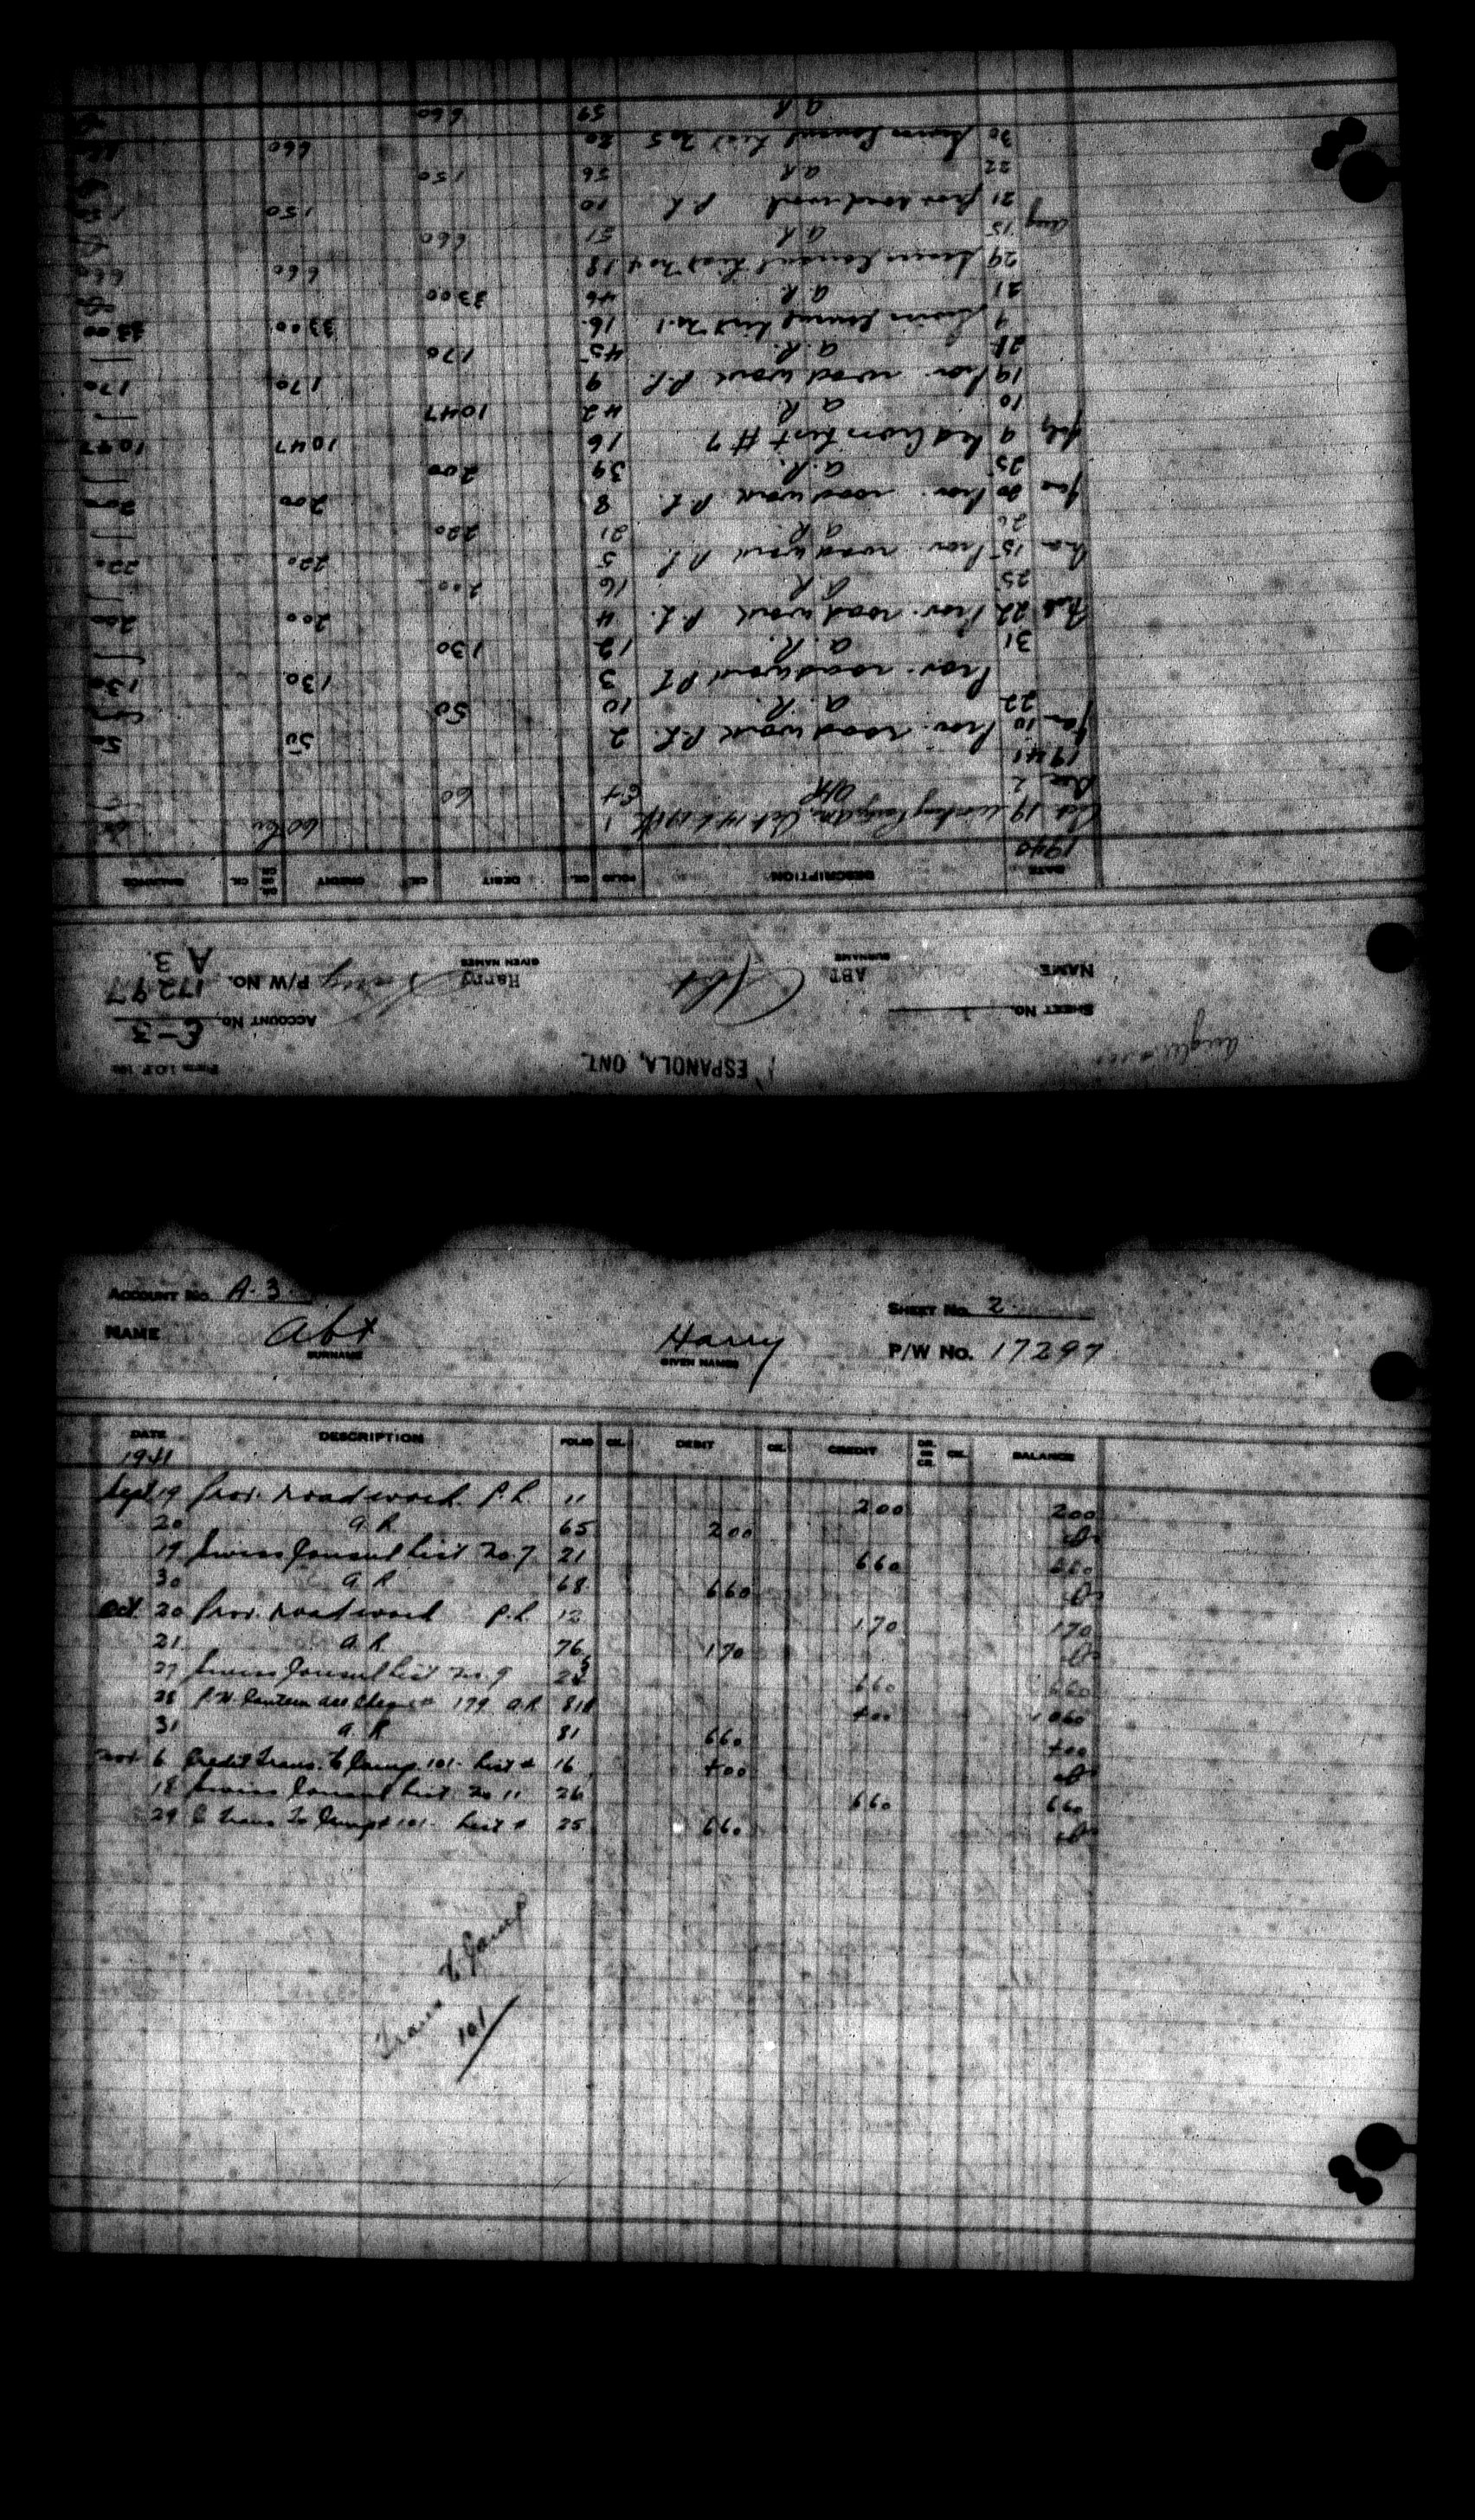 ESPANOLA, ONT.
SHEET NO.
ACCOUNT NO. E-3
NAME ABT Abt Harry Harry P/W NO. 17297
SURNAME GIVEN NAMES A 3
DATE DESCRIPTION FOLIO CK. DEBIT CK. CREDIT DR. OR CR. CK. BALANCE
1940
Oct 19 1 60 60
Dec 2 60
1941
Jan 10 Prov. road work P.L. 2 50 50
22 A.R. 10 50
Prov. road work P.L. 3 130 130
31 A.R. 12 130
Feb 22 Prov. road work P.L. 4 200 200
25 A.R. 16 200
Mar 15 Prov. road work P.L. 5 220 220
26 A.R. 21 220
Jun 20 Prov. road work P.L. 8 200 200
25 A.R. 39 200
July 9 Red Cross List #7 16 1047 1047
10 A.R. 42 1047
19 Prov. road work P.L. 9 170 170
A.R. 45 170
9 Swiss Consul List No. 1 16 3300 3300
21 A.R. 46 3300
29 Swiss Consul List No 4 18 660 660
Aug 15 A.R. 51 660
21 Prov. road work P.L. 10 150 150
22 A.R. 56 150
30 Swiss Consul List No 5 20 660 660
A.R. 59 660
ACCOUNT NO. A-3 SHEET NO. 2
NAME Abt Harry P/W NO. 17297
SURNAME GIVEN NAMES
DATE DESCRIPTION FOLIO CK. DEBIT CK. CREDIT DR. OR CR. CK. BALANCE
1941
Sept 19 Prov. road work. P.L. 11 200 200
20 A.R 65 200
19 Swiss Consul List No. 7 21 660 660
30 A R 68 660
Oct 20 Prov. road work P.L 12 170 170
21 A.R 76 170
27 Swiss Consul List No. 9 660 660
28 P.W. Canteen acc cheque # 179 A.R 81 400 1060
31 A R 81 660 400
Nov 6 Credit Trans. to Camp 101- List # 16 400
18 Swiss Consul List No 11 26 660 660
29 C Trans to Camp # 101- List # 25 660
Trans to Camp
101